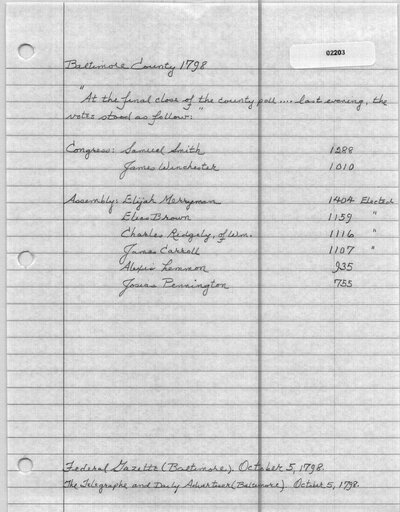 02203
Baltimore County 1798
"At the final close of the county poll .... last evening, the
votes stood as follow:"
Congress: Samuel Smith 1288
James Winchester 1010
Assembly: Elijah Merryman 1404 Elected
Elias Brown 1159 "
Charles Ridgely, of Wm. 1116 "
James Carroll 1107 "
Alexis Lemmon 935
Josias Pennington 755
Federal Gazette (Baltimore). October 5, 1798.
The Telegraphe and Daily Advertiser (Baltimore). October 5, 1798.